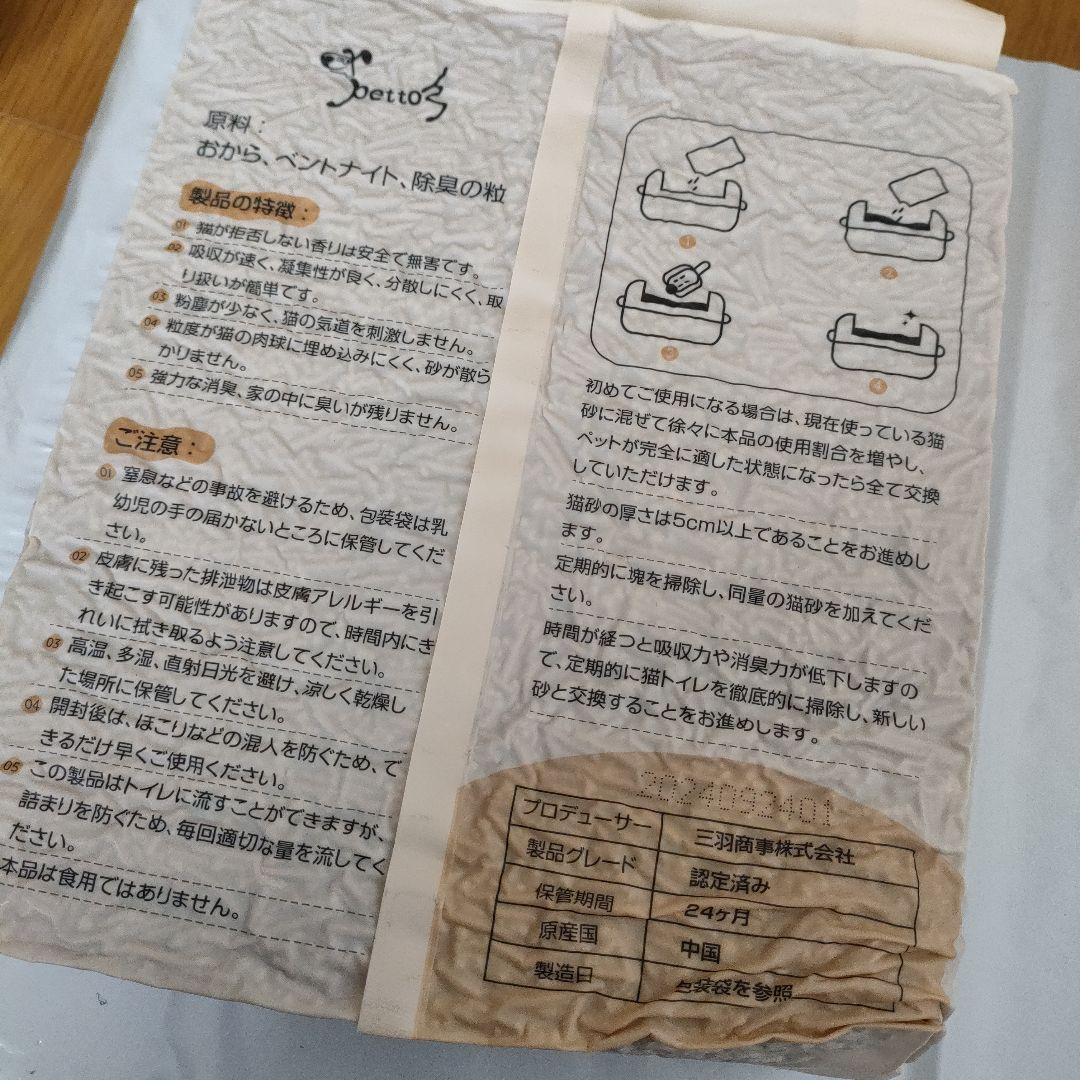 petto
原料：
おから、ベントナイト、除臭の粒
製品の特徴：
01 猫が拒否しない香りは安全で無害です。
02 吸収が速く、凝集性が良く、分散しにくく、取
り扱いが簡単です。
03 粉塵が少なく、猫の気道を刺激しません。
04 粒度が猫の肉球に埋め込みにくく、砂が散ら
かりません。
05 強力な消臭、家の中に臭いが残りません。
ご注意：
01 窒息などの事故を避けるため、包装袋は乳
幼児の手の届かないところに保管してくだ
さい。
02 皮膚に残った排泄物は皮膚アレルギーを引
き起こす可能性がありますので、時間内にき
れいに拭き取るよう注意してください。
03 高温、多湿、直射日光を避け、涼しく乾燥し
た場所に保管してください。
04 開封後は、ほこりなどの混人を防ぐため、で
きるだけ早くご使用ください。
05 この製品はトイレに流すことができますが、
詰まりを防ぐため、毎回適切な量を流してく
ださい。
本品は食用ではありません。
1
2
3
4
初めてご使用になる場合は、現在使っている猫
砂に混ぜて徐々に本品の使用割合を増やし、
ペットが完全に適した状態になったら全て交換
していただけます。
猫砂の厚さは5cm以上であることをお進めし
ます。
定期的に塊を掃除し、同量の猫砂を加えてくだ
さい。
時間が経つと吸収力や消臭力が低下しますの
で、定期的に猫トイレを徹底的に掃除し、新しい
砂と交換することをお進めします。
2024092401
プロデューサー 三羽商事株式会社
製品グレード 認定済み
保管期間 24ヶ月
原産国 中国
製造日 包装袋を参照